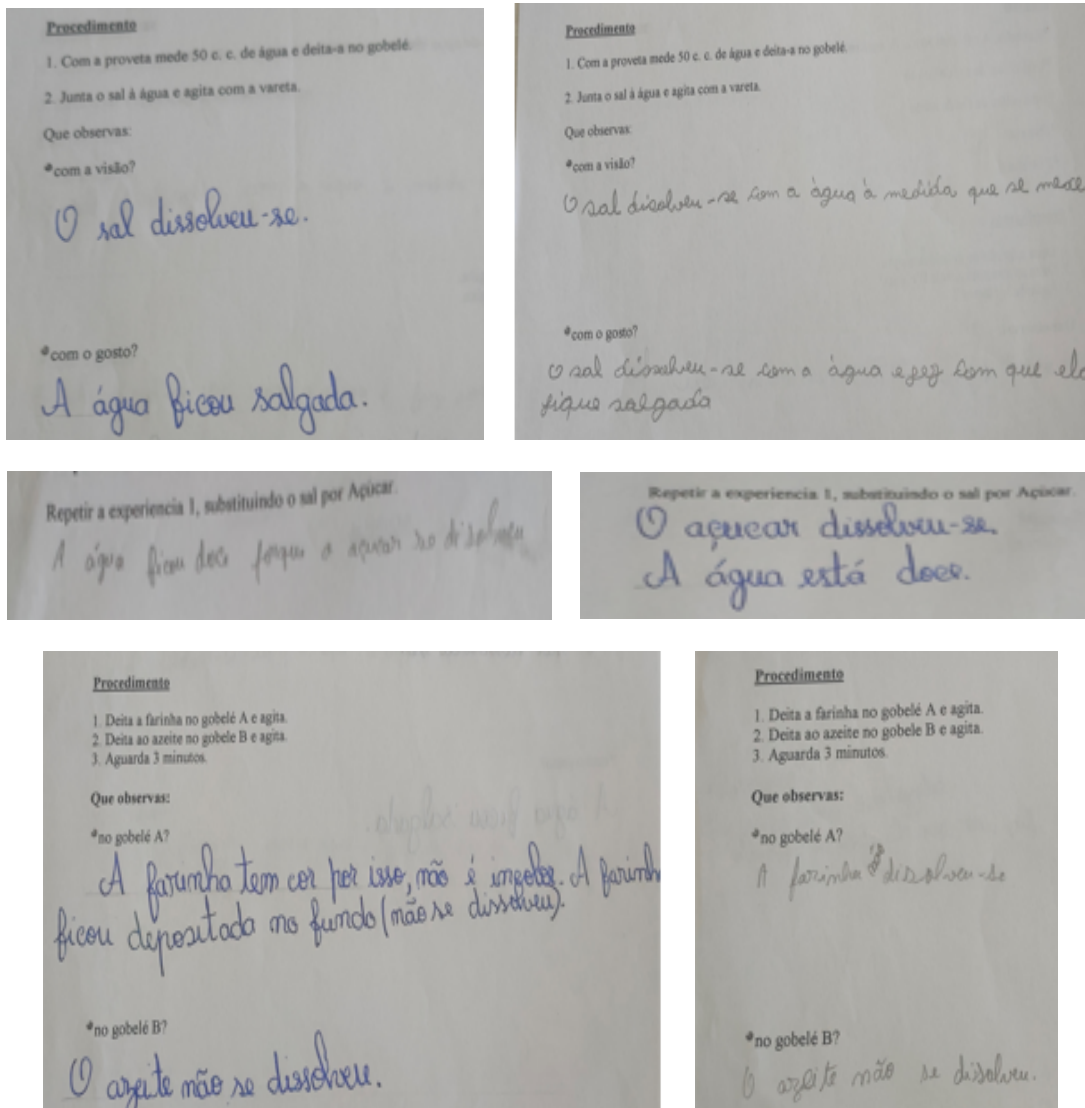 Procedimento
1. Com a proveta mede 50 c. c. de água e deita-a no gobelé.
2. Junta o sal à água e agita com a vareta.
Que observas:
*com a visão?
O sal dissolveu-se.
*com o gosto?
A água ficou salgada.
Procedimento
1. Com a proveta mede 50 c. c. de água e deita-a no gobelé.
2. Junta o sal à água e agita com a vareta.
Que observas:
*com a visão?
O sal disolveu-se com a água à medida que se mexe
*com o gosto?
O sal dissolveu-se com a água e fez com que ela
fique salgada
Repetir a experiencia 1, substituindo o sal por Açúcar.
A água ficou doce porque o açucar se disolveu
Repetir a experiencia 1, substituindo o sal por Açúcar.
O açucar dissolveu-se.
A água está doce.
Procedimento
1. Deita a farinha no gobelé A e agita.
2. Deita ao azeite no gobele B e agita.
3. Aguarda 3 minutos.
Que observas:
*no gobelé A?
A farinha tem cor por isso, não é incolor. A farinh
ficou depositada no fundo (não se dissolveu).
*no gobelé B?
O azeite não se dissolveu.
Procedimento
1. Deita a farinha no gobelé A e agita.
2. Deita ao azeite no gobele B e agita.
3. Aguarda 3 minutos.
Que observas:
*no gobelé A?
A farinha disolveu-se
*no gobelé B?
O azeite não se disolveu.